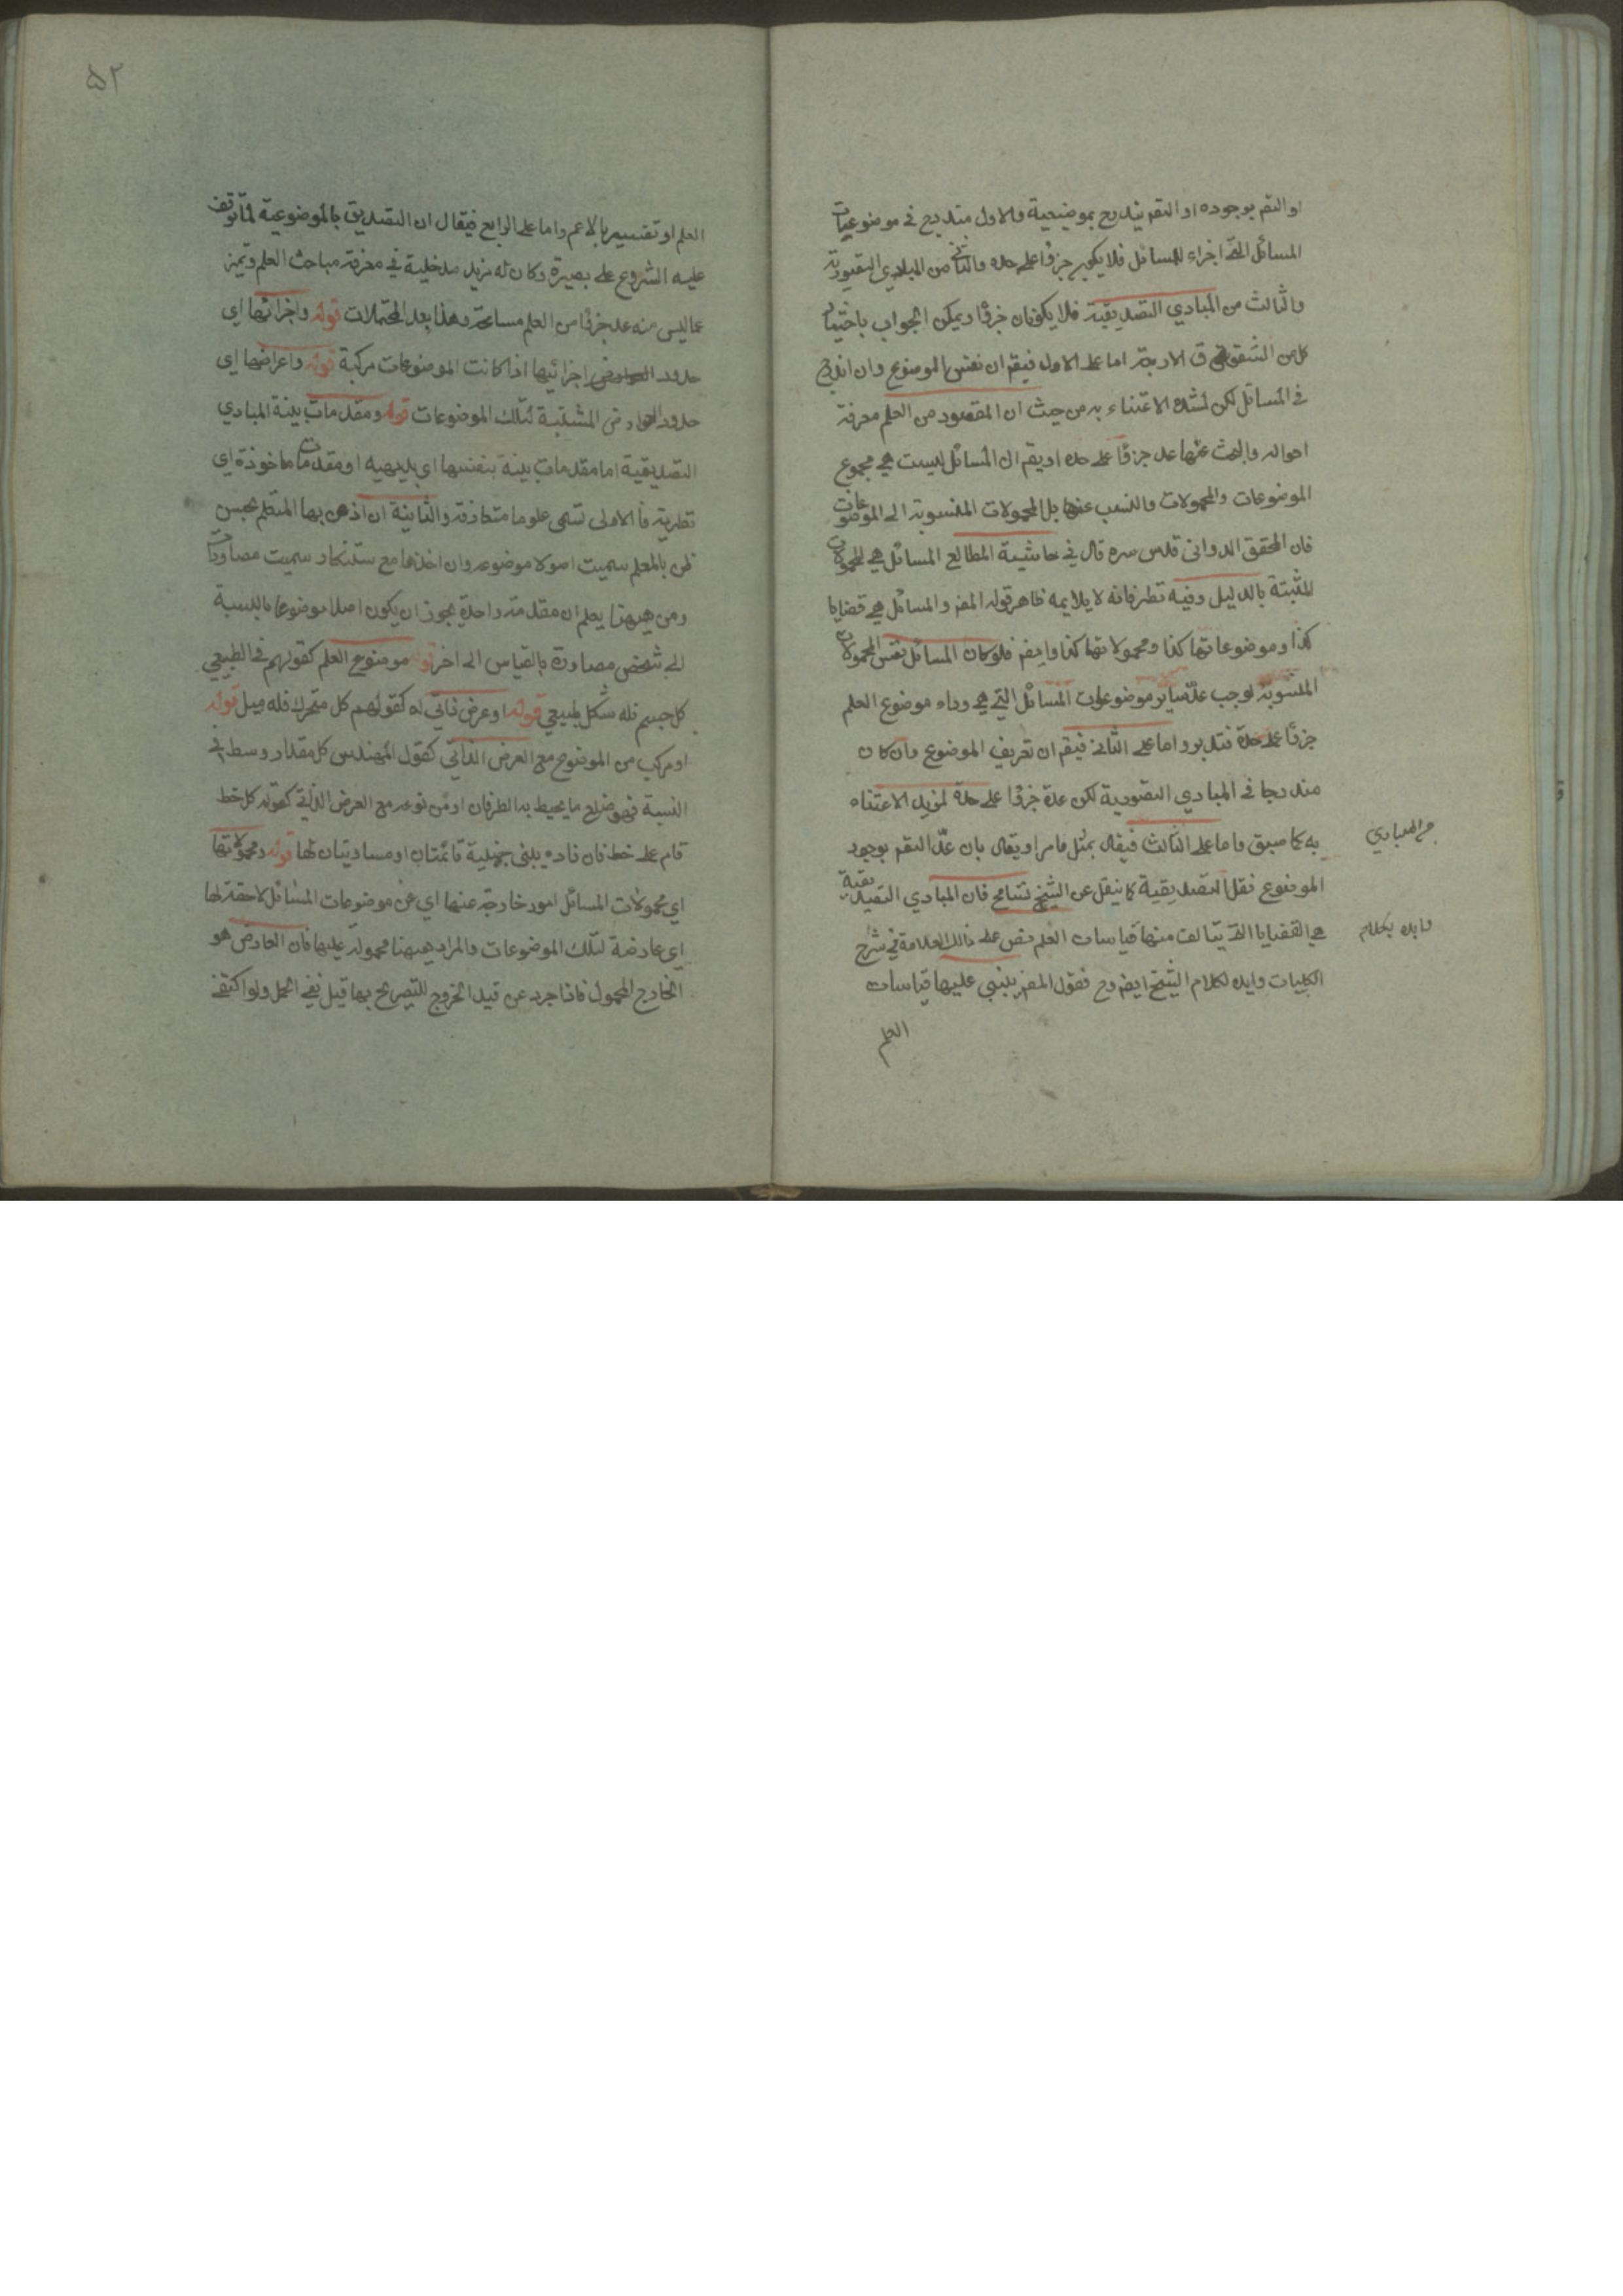 او التقم بوجوده او التقم يندرج بموضيعية والاول مندرج في موضوعيات
المسائل التي اجزاء للمسائل فلا يكون جزءًا على حده والثاني من المبادي التصورية
والثالث من المبادي التصديقية فلا يكونان جزءًا ويمكن الجواب باختيار
كل من الشقوق الاربعة اما على الاول فيقم ان نفس الموضوع وان اندرج
في المسائل لكن لشدة الاعتناء به من حيث ان المقصود من العلم معرفة
احواله والبحث عنها عد جزءًا على حده او يقم ان المسائل ليست هي مجموع
الموضوعات والمحمولات والنسب بل المحمولات المنسوبة الى الموضوعات
فان المحقق الدواني قدس سره قال في حاشية المطالع المسائل هي المحمولات
المثبتة بالدليل وفيه نظر فانه لا يلايمه ظاهر قوله المض والمسائل هي قضايا
كذا وموضوعاتها كذا ومحمولاتها كذا وايضم فلو كان المسائل نفس المحمولات
المنسوبة لوجب عد ساير موضوعات المسائل التي هي وراء موضوع العلم
جزءًا على حدة فتدبر واما على الثاني فيقم ان تعريف الموضوع وان كان
مندرجا في المبادي التصورية لكن عده جزءًا على حدة لمزيد الاعتناء
به كما سبق واما على الثالث فيقال بمثل ما مر او يقال بان عد التقم بوجود
الموضوع من المبادي
التصديقية كما ينقل عن الشيخ تسامح فان المبادي التصديقية
هي القضايا التي يتالف منها قياسات العلم نص على ذلك العلامة في شرح
وايده بكلام
الكليات وايده لكلام الشيخ ايضم وح فقول المض يبتني عليها قياسات
العلم
٥٢
العلم او تفسيره بالاعم واما على الرابع فيقال ان التصديق بالموضوعية لما توقف
عليه الشروع على بصيرة وكان له مزيد مدخلية في معرفة مباحث العلم وتميز
عما ليس منه عد جزءًا من العلم مسامحة وهذا بعد المحتملات قوله واجزائها اي
حدود اجزائها اذا كانت الموضوعات مركبة قوله واعراضها اي
حدود العوارض المثبتة لتلك الموضوعات قوله ومقدمات بينة المبادي
التصديقية اما مقدمات بينة بنفسها اي بديهيه او مقدمات ماخوذة اي
نظرية فالاولى تسمى علوما متعارفة والثانية ان اذعن بها المتعلم بحسن
ظن بالمعلم سميت اصولا موضوعه وان اخذها مع استنكار سميت مصادرات
ومن ههنا يعلم ان مقدمة واحدة يجوز ان يكون اصلا موضوعا بالنسبة
الى شخص مصادرة بالقياس الى اخر قوله موضوع العلم كقولهم في الطبيعي
كل جسم فله شكل طبيعي قوله او عرض ذاتي له كقولهم كل متحرك فله ميل قوله
او مركب من الموضوع مع العرض الذاتي كقول المهندس كل مقدار وسط في
النسبة فهو ضلع ما يحيط به الطرفان او من نوعه مع العرض الذاتي كقوله كل خط
قام على خط فان زاويتي جنبيه قائمتان او مساويتان لها قوله ومحمولاتها
اي محمولات المسائل امور خارجة عنها اي عن موضوعات المسائل لاحقة لها
اي عارضة لتلك الموضوعات والمراد ههنا محمولة عليها فان العارض هو
الخارج المحمول فاذا جرد عن قيد الخروج للتصريح بها قبل نفي الحمل ولو اكتفى